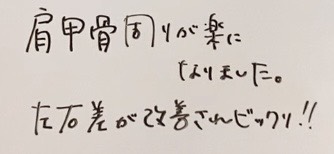 肩甲骨回りが楽に
なりました。
左右差が改善されビックリ!!